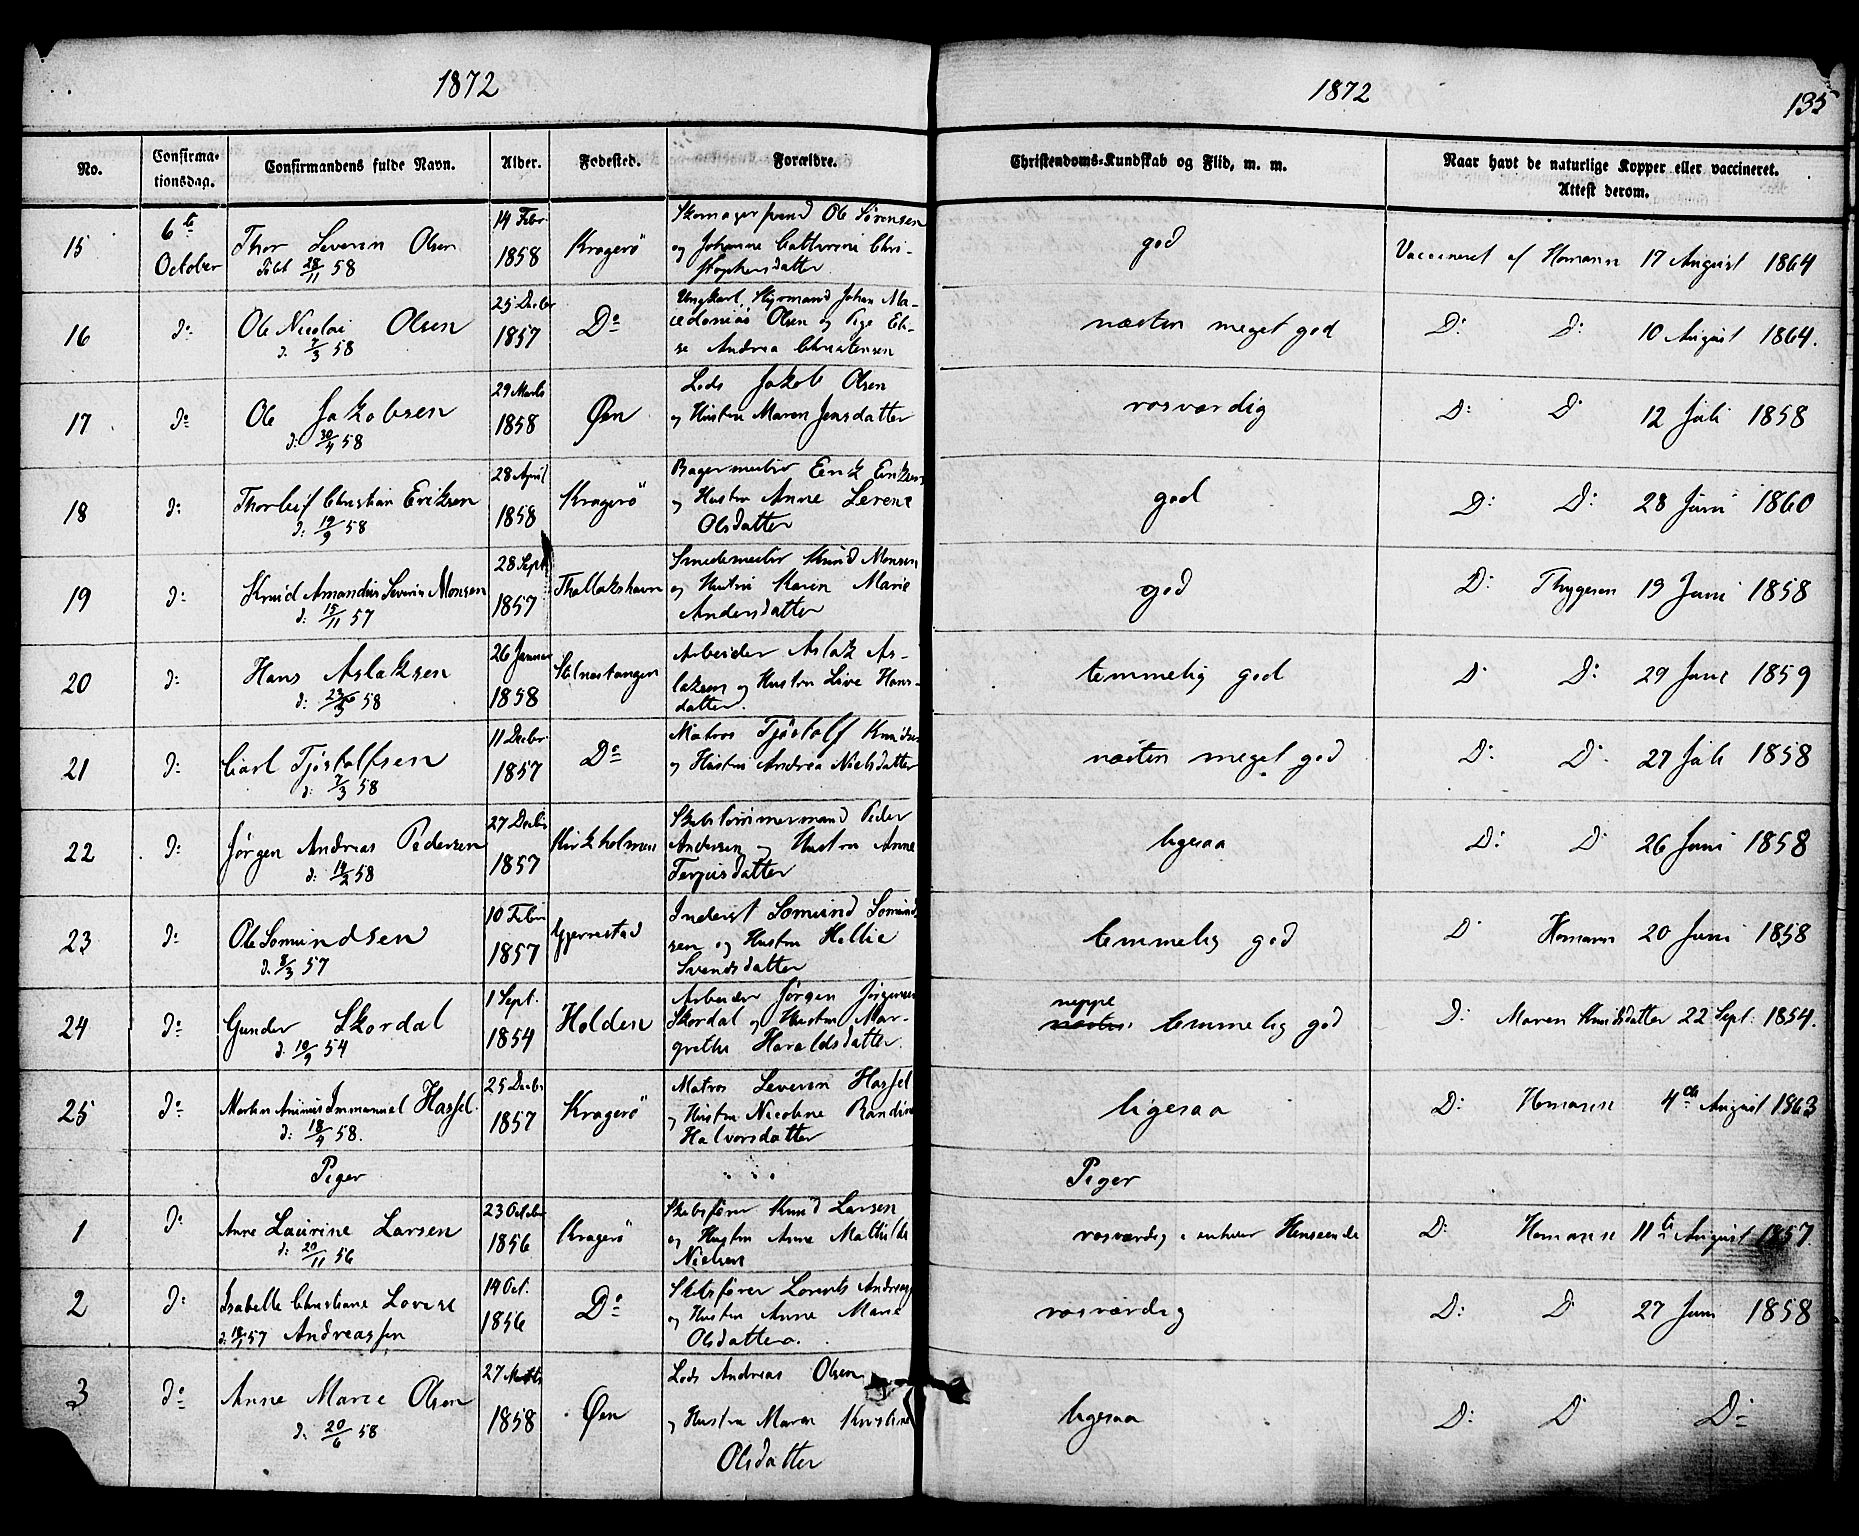 1872
1872
135
No.
Confirma-
tionsdag.
Confirmandens fulde Navn.
Alder.
Fødested.
Forældre.
Christendoms-Kundskab og Flid, m. m.
Naar havt de naturlige Kopper eller vaccineret.
Attest derom.
15
6te
October
Thor Severin Olsen
28/11 58
14 Febr.
1858
Kragerö
Skomagersvend Ole Sörensen
og Johanne Cathrine Chri-
stophersdatter
god
Vaccineret af Homann 17 August 1864
16
do
Ole Nicolai Olsen
d: 7/3 58
25 Decbr
1857
Do
Ungkarl, Styrmand Johan Ma-
cedonias Olsen og Pige Eli-
se Andrea Christensen
næsten meget god
D: D: 10 August 1864.
17
do
Ole Jakobsen
d: 30/4 58
29 Marts
1858
Øen
Lods Jakob Olsen
og Hustru Maren Jensdatter
rosværdig
D: D: 12 Juli 1858
18
d:
Thorleif Christian Eriksen
d: 19/9 58
28 April
1858
Kragerö
Bagermester Erik Eriksen
og Hustru Anne Serene
Olsdatter
god
D: D: 28 Juni 1860
19
d:
Knud Amandus Severin Monsen
d: 15/11 57
28 Sept
1857
Thallakshavn
Smedemester Knud Monsen
og Hustru Karen Marie
Andersdatter
god
D: Thygesen 19 Juni 1858
20
d:
Hans Aslaksen
d: 58
26 Januar
1858
Stilnestangen
Arbeider Aslak As-
laksen og Hustru Live Hans-
datter.
temmelig god
D D: 29 Juni 1859
21
d:
Carl Tjöstolfsen
d: 7/3 58
11 Decbr.
1857
Do
Matros Tjöstolf Knudsen
og Hustru Andrea Nielsdatter
næsten meget god
D: D: 27 Juli 1858
22
d:
Jörgen Andreas Pedersen
d: 14/2 58
27 Decbr
1857
Kirkholmen
Skibstömmermand Peder
Andersen og Hustru Anne
Terjusdatter
ligesaa
D: D 26 Juni 1858
23
d:
Ole Somundsen
d. 8/3 57
10 Febr
1857
Gjerrestad
Inderst Somund Somund-
sen og Hustru Hellie
Svendsdatter
temmelig god
D Homann 20 Juni 1858
24
do
Gunder Skordal
d. 10/9 54
1 Sept.
1854
Holden
Arbeider Jörgen Jörgensen
Skordal og Hustru Mar-
grethe Haraldsdatter.
neppe
næsten temmelig god
D: Maren Knudsdatter 22 Sept. 1854.
25
do
Immanuel Hassel.
d: 18/4 58.
25 Decbr
1857
Kragerö
Matros Severin Hassel
og Hustru Nicoline Randine
Halvorsdatter
ligesaa
D: Homann 4de August 1863
Piger
Piger
1
do
Anne Laurine Larsen
d: 20/11 56
23 October
1856
Kragerö
Skibsförer Knud Larsen
og Hustru Anne Mathilde
Nielsen
rosværdig i enhver Henseende
D: Homann 11te August 1857.
2
d:
Isabelle Christiane Lovise
57 Andreassen
14 Oct.
1856
Do
Skibsförer Lorents Andreas
og Hustru Anne Marie
Olsdatter
rosværdig
D: D 27 Juni 1858
3
do
Anne Marie Olsen
d: 20/6 58
27 Marts
1858
Øen
Lods Andreas Olsen
og Hustru Maren Kirstine
Olsdatter
ligesaa
D: D Do